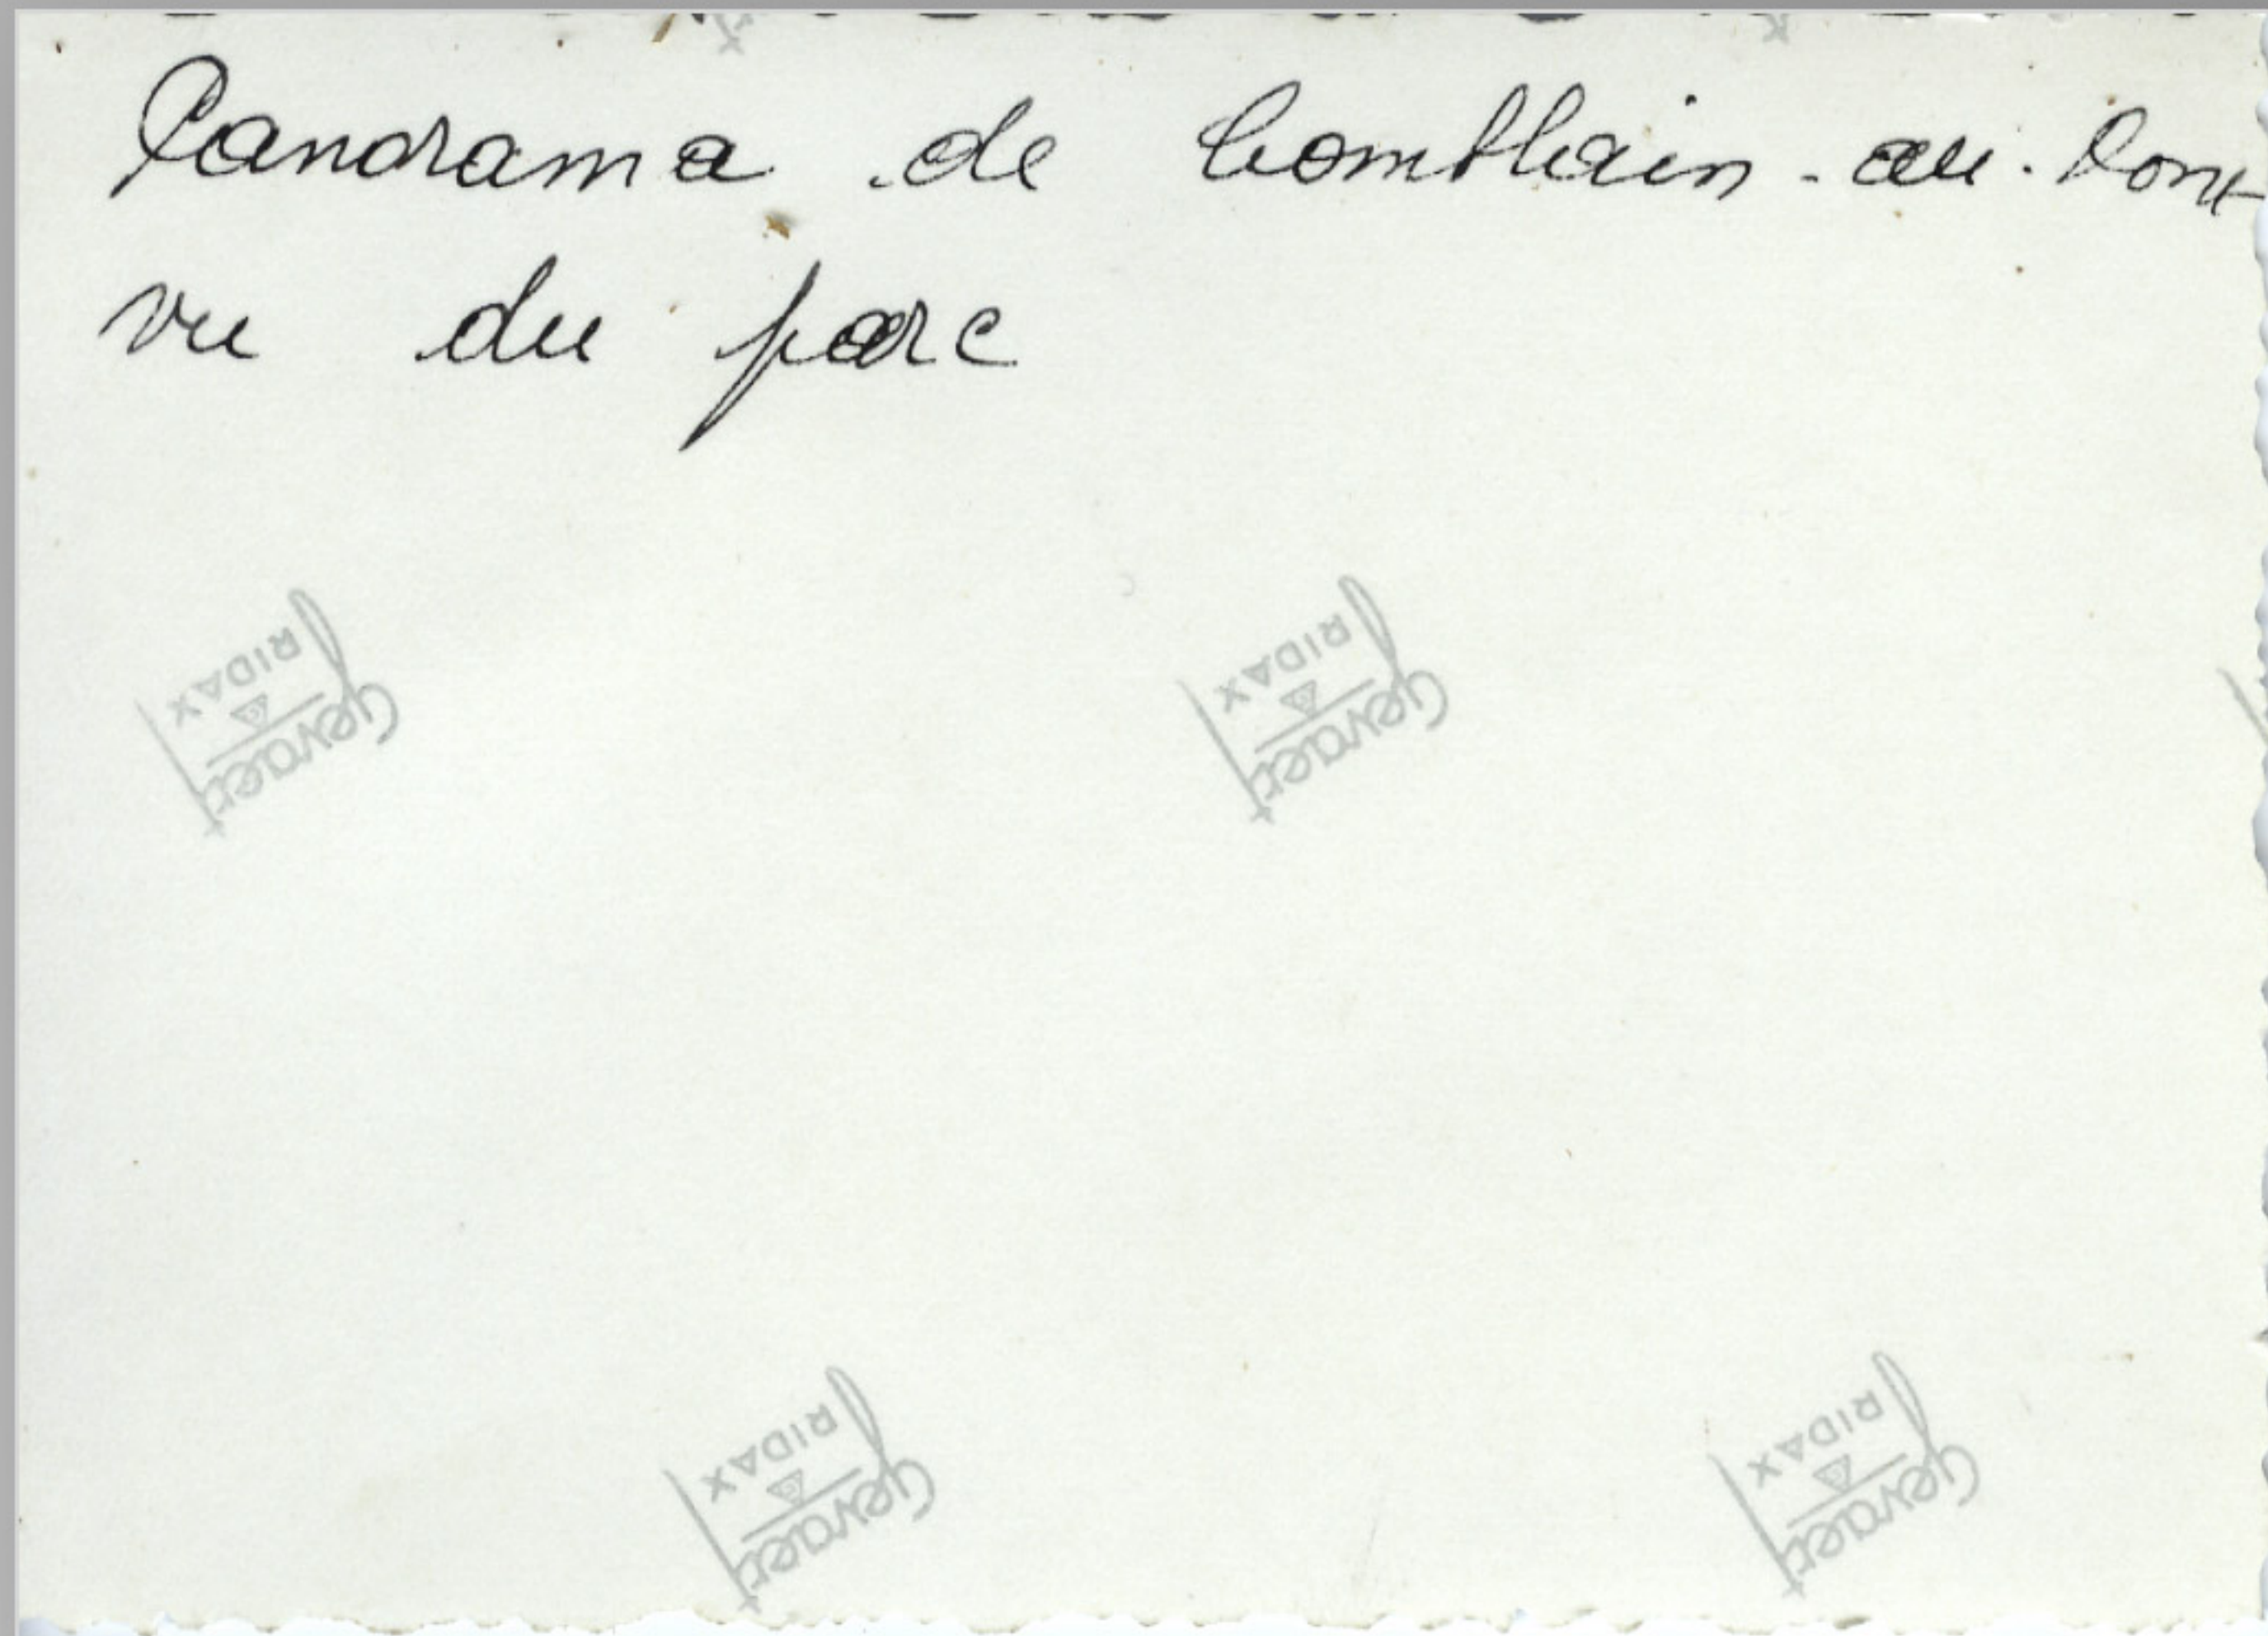 Panorama de Comblain-au-Pont
vu du parc
Gevaert
RIDAX
Gevaert
RIDAX
Gevaert
RIDAX
Gevaert
RIDAX